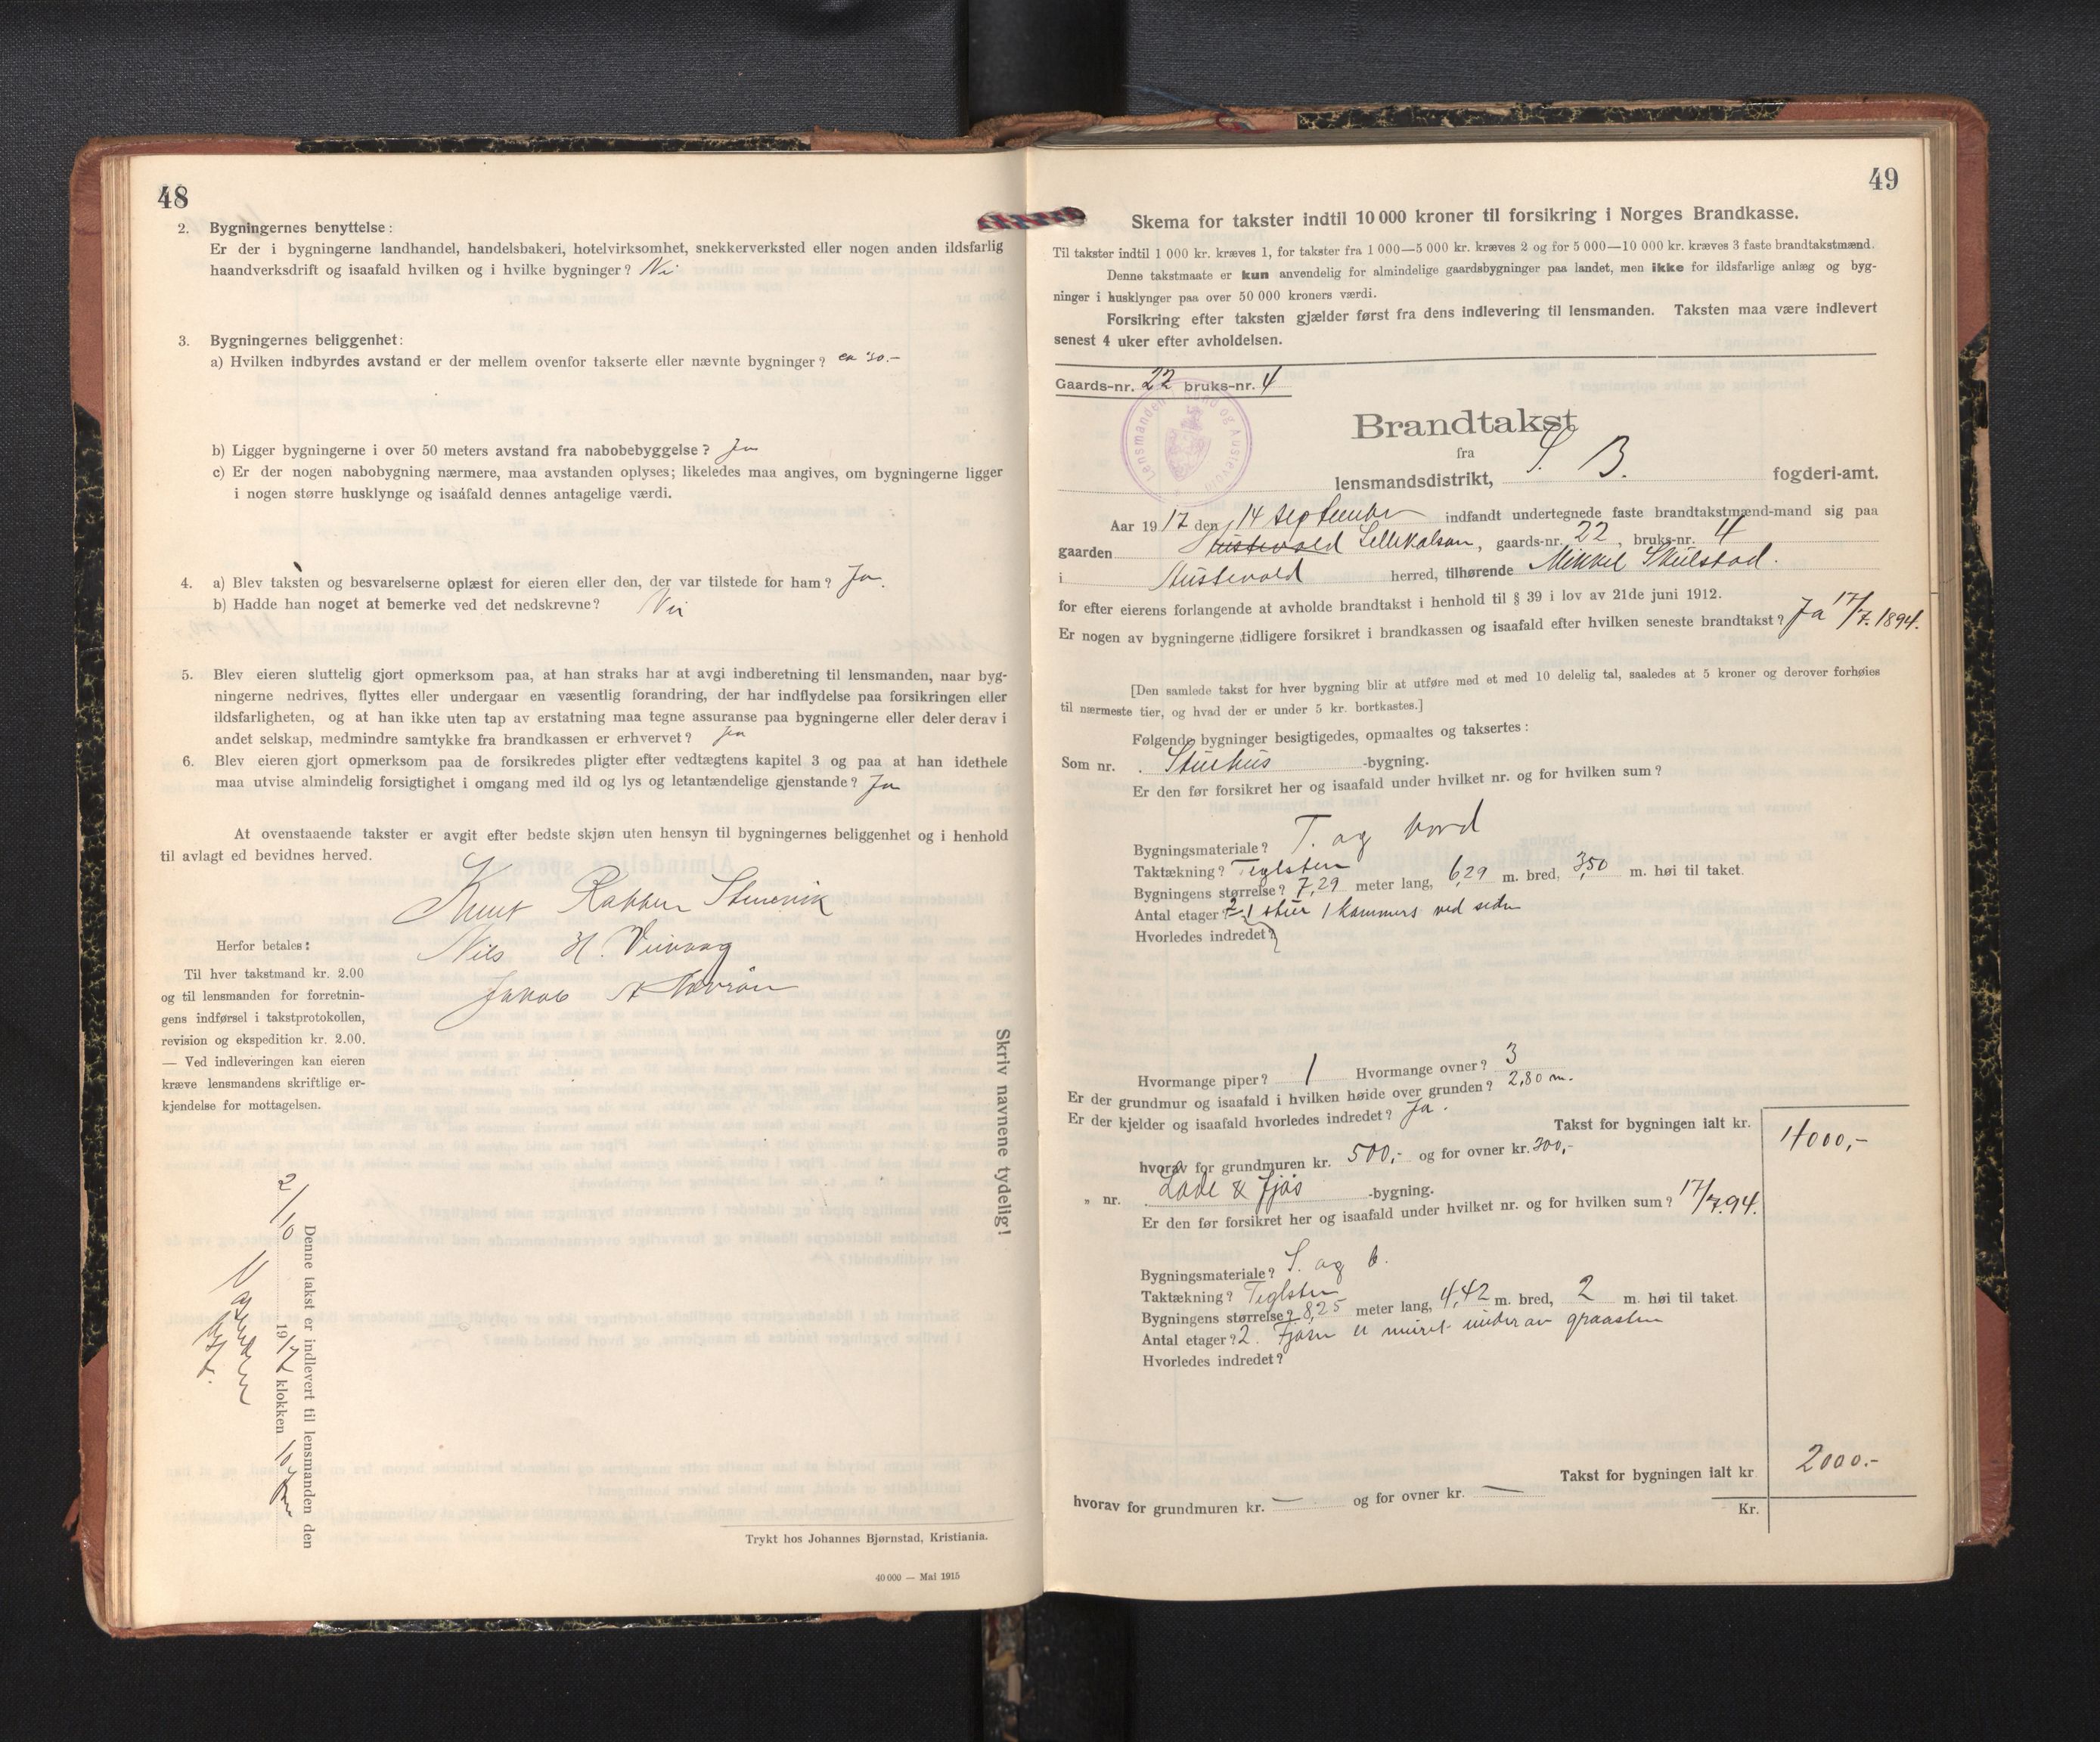 48
2. Bygningernes benyttelse:
Er der i bygningerne landhandel, handelsbakeri, hotelvirksomhet, snekkerverksted eller nogen anden ildsfarlig
haandverksdrift og isaafald hvilken og i hvilke bygninger? Nei
3. Bygningernes beliggenhet:
a) Hvilken indbyrdes avstand er der mellem ovenfor takserte eller nævnte bygninger? ca 30.-
b) Ligger bygningerne i over 50 meters avstand fra nabobebyggelse? Ja
c) Er der nogen nabobygning nærmere, maa avstanden oplyses; likeledes maa angives, om bygningerne ligger
i nogen større husklynge og isaafald dennes antagelige værdi.
4. a) Blev taksten og besvarelserne oplæst for eieren eller den, der var tilstede for ham? Ja.
b) Hadde han noget at bemerke ved det nedskrevne? Nei
5. Blev eieren sluttelig gjort opmerksom paa, at han straks har at avgi indberetning til lensmanden, naar byg-
ningerne nedrives, flyttes eller undergaar en væsentlig forandring, der har indflydelse paa forsikringen eller
ildsfarligheten, og at han ikke uten tap av erstatning maa tegne assuranse paa bygningerne eller deler derav i
andet selskap, medmindre samtykke fra brandkassen er erhvervet? Ja
6. Blev eieren gjort opmerksom paa de forsikredes pligter efter vedtægtens kapitel 3 og paa at han idethele
maa utvise almindelig forsigtighet i omgang med ild og lys og letantændelige gjenstande? Ja
At ovenstaaende takster er avgit efter bedste skjøn uten hensyn til bygningernes beliggenhet og i henhold
til avlagt ed bevidnes herved.
Knut Rabben Stenevik
Nils H. Veivaag
Jakob A
Herfor betales:
Til hver takstmand kr. 2.00
og til lensmanden for forretnin-
gens indførsel i takstprotokollen,
revision og ekspedition kr. 2.00.
— Ved indleveringen kan eieren
kræve lensmandens skriftlige er-
kjendelse for mottagelsen.
Skriv navnene tydelig!
Denne takst er indlevert til lensmanden den
2/10 1917 klokken 10
Trykt hos Johannes Bjørnstad, Kristiania.
40 000 — Mai 1915
49
Skema for takster indtil 10 000 kroner til forsikring i Norges Brandkasse.
Til takster indtil 1 000 kr. kræves 1, for takster fra 1 000—5 000 kr. kræves 2 og for 5 000—10 000 kr. kræves 3 faste brandtakstmænd.
Denne takstmaate er kun anvendelig for almindelige gaardsbygninger paa landet, men ikke for ildsfarlige anlæg og byg-
ninger i husklynger paa over 50 000 kroners værdi.
Forsikring efter taksten gjælder først fra dens indlevering til lensmanden. Taksten maa være indlevert
senest 4 uker efter avholdelsen.
Gaards-nr. 22 bruks-nr. 4
Lensmanden i Sund og Austevold
Brandtakst
fra
lensmandsdistrikt, S. B. fogderi-amt.
Aar 1917 den 14 September indfandt undertegnede faste brandtakstmænd-mand sig paa
gaarden Austevold Lillekalsøn, gaards-nr. 22, bruks-nr. 4
i Austevold herred, tilhørende Mikkel Skulstad.
for efter eierens forlangende at avholde brandtakst i henhold til § 39 i lov av 21de juni 1912.
Er nogen av bygningerne tidligere forsikret i brandkassen og isaafald efter hvilken seneste brandtakst? Ja 17/7. 1894.
[Den samlede takst for hver bygning blir at utføre med et med 10 delelig tal, saaledes at 5 kroner og derover forhøies
til nærmeste tier, og hvad der er under 5 kr. bortkastes.]
Følgende bygninger besigtigedes, opmaaltes og taksertes:
Som nr. Stuehus -bygning.
Er den før forsikret her og isaafald under hvilket nr. og for hvilken sum?
Bygningsmateriale? T. og bord
Taktækning? Teglsten
Bygningens størrelse? 7,29 meter lang, 6,29 m. bred, 3,50 m. høi til taket.
Antal etager? 2. 1 stue 1 kammers ved siden
Hvorledes indredet?
Hvormange piper? 1 Hvormange ovner? 3
Er der grundmur og isaafald i hvilken høide over grunden? 2,80 m.
Er der kjelder og isaafald hvorledes indredet? Ja.
Takst for bygningen ialt kr. 4000,-
hvorav for grundmuren kr. 500,- og for ovner kr. 300,-
„ nr. Lade & fjøs -bygning.
Er den før forsikret her og isaafald under hvilket nr. og for hvilken sum? 17/7.94.
Bygningsmateriale? S. og b.
Taktækning? Teglsten
Bygningens størrelse? 8,25 meter lang, 4,42 m. bred, 2 m. høi til taket.
Antal etager? 2. Fjøsen er muret under av graasten
Hvorledes indredet?
Takst for bygningen ialt kr 2000.-
hvorav for grundmuren kr. — og for ovner kr. —
Kr.